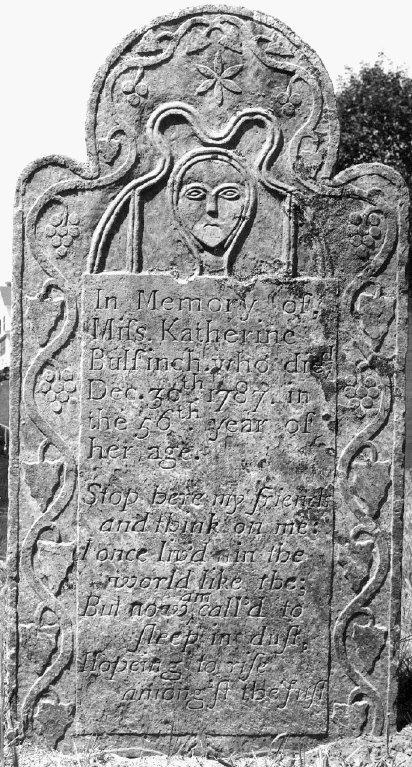 In Memory of,
Miſs. Katherine
Bulfinch. who died
Dec. 30th 1787. in
the 56th year of
her age.
Stop here my friends
and think on me:
I once liv'd in the
world like the;
But now am call'd to
ſleep in duſt,
Hopeing to riſe
amongſt the juſt